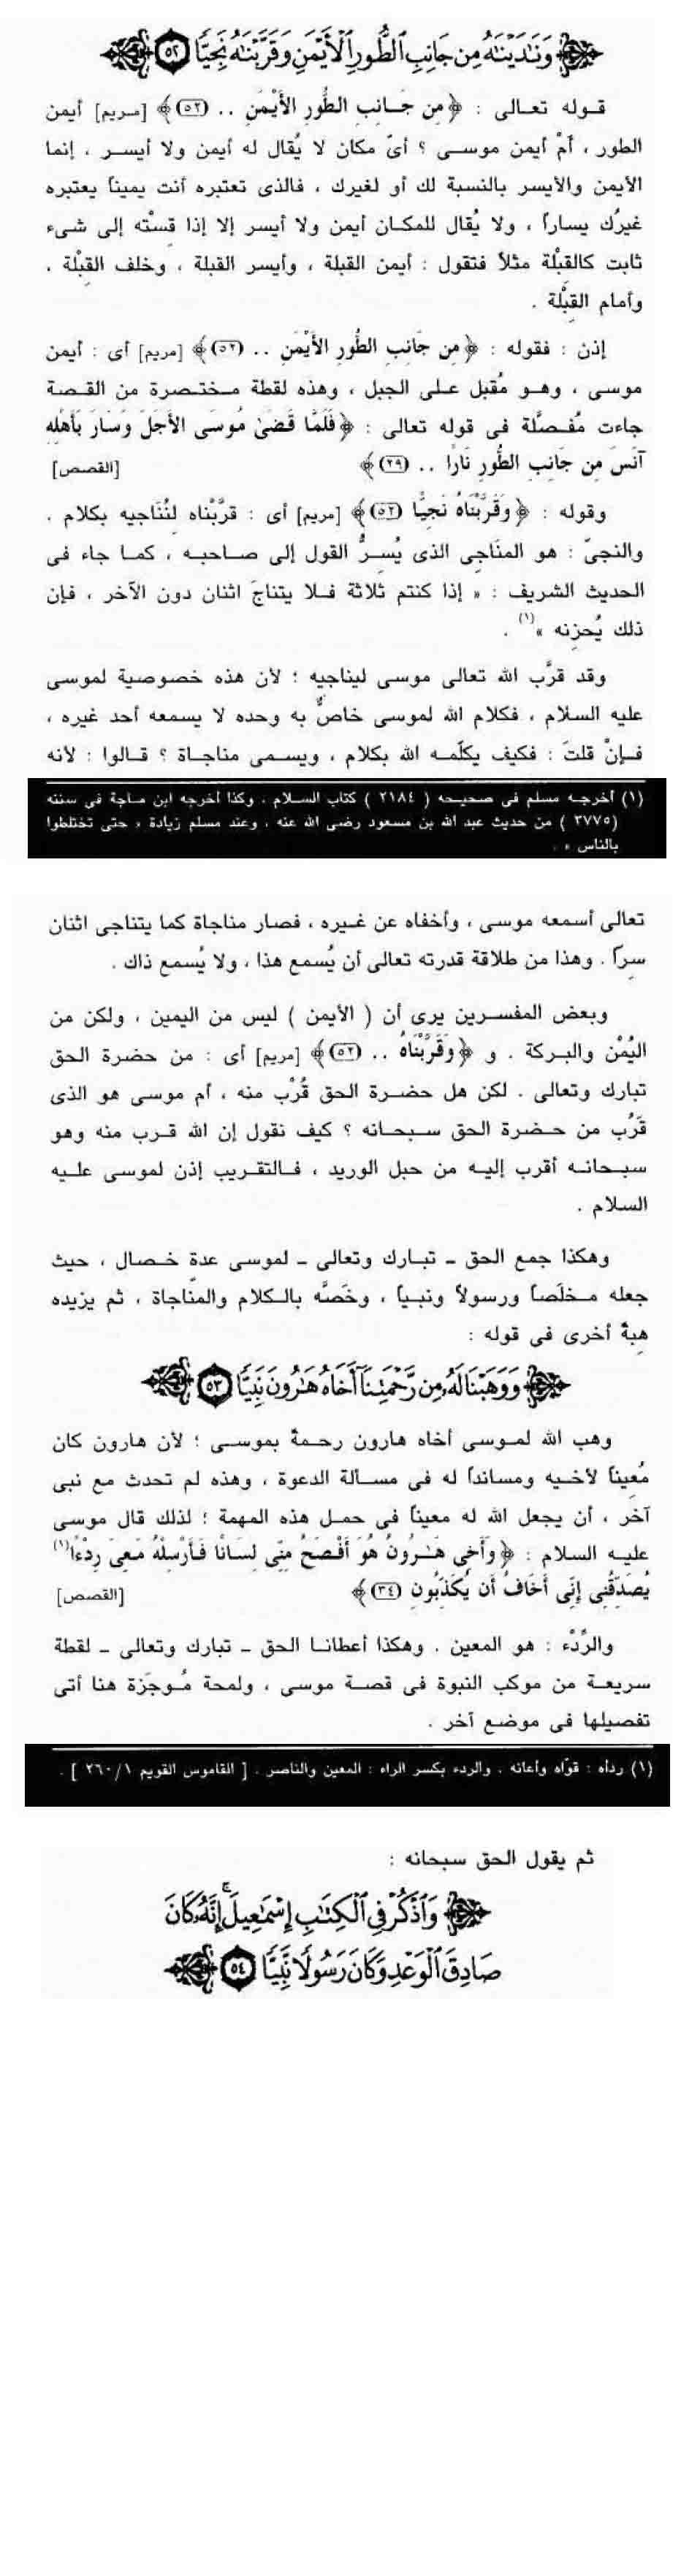 وَنَـٰدَيْنَـٰهُ مِن جَانِبِ ٱلطُّورِ ٱلْأَيْمَنِ وَقَرَّبْنَـٰهُ نَجِيًّا ٥٢
قـولـه تعـالى : ﴿ مِن جَـانِبِ الطُّورِ الأَيْمَنِ .. (٥٢) ﴾ [مريم] أيمن
الطور ، أَمْ أيمن موسـى ؟ أىّ مكان لا يُقال له أيمن ولا أيسـر ، إنما
الأيمن والأيسر بالنسبة لك أو لغيرك ، فالذى تعتبره أنت يميناً يعتبره
غيرُك يساراً ، ولا يُقال للمكـان أيمن ولا أيسر إلا إذا قِسْته إلى شىء
ثابت كالقِبْلة مثلاً فتقول : أيمن القبلة ، وأيسر القبلة ، وخلف القِبْلة ،
وأمام القِبْلة .
إذن : فقوله : ﴿ مِن جَانِبِ الطُّورِ الأَيْمَنِ .. (٥٢) ﴾ [مريم] أى : أيمن
موسى ، وهـو مُقبل علـى الجبل ، وهذه لقطة مـختـصرة من القـصة
جاءت مُفـصَّلة فى قوله تعالى : ﴿ فَلَمَّا قَضَىٰ مُوسَى الأَجَلَ وَسَارَ بِأَهْلِهِ
آنَسَ مِن جَانِبِ الطُّورِ نَارًا .. (٢٩) ﴾ [القصص]
وقوله : ﴿ وَقَرَّبْنَاهُ نَجِيًّا (٥٢) ﴾ [مريم] أى : قرَّبْناه لِنُنَاجيه بكلام .
والنجىّ : هو المنَاجِى الذى يُسِـرُّ القول إلى صـاحبـه ، كمـا جاء فى
الحديث الشريف : « إذا كنتم ثلاثة فـلا يتناجَ اثنان دون الآخر ، فإن
ذلك يُحزِنه »(١) .
وقد قرَّب الله تعالى موسى ليناجيه ؛ لأن هذه خصوصية لموسى
عليه السلام ، فكلام الله لموسى خاصٌّ به وحده لا يسمعه أحد غيره ،
فـإنْ قلتَ : فكيف يكلّمـه الله بكلام ، ويسـمى مناجـاة ؟ قـالوا : لأنه
(١) أخرجـه مسلم فى صحيحـه ( ٢١٨٤ ) كتاب السـلام ، وكذا أخرجه ابن مـاجة فى سننه
( ٣٧٧٥ ) من حديث عبد الله بن مسعود رضى الله عنه ، وعند مسلم زيادة « حتى تختلطوا
بالناس » .
تعالى أسمعه موسى ، وأخفاه عن غـيره ، فصار مناجاة كما يتناجى اثنان
سِراً . وهذا من طلاقة قدرته تعالى أن يُسمع هذا ، ولا يُسمع ذاك .
وبعض المفسـرين يرى أن ( الأيمن ) ليس من اليمين ، ولكن من
اليُمْن والبـركة . و ﴿ وَقَرَّبْنَاهُ .. (٥٢) ﴾ [مريم] أى : من حضرة الحق
تبارك وتعالى . لكن هل حضـرة الحق قُرْب منه ، أم موسى هو الذى
قَرُب من حـضرة الحق سـبحـانه ؟ كيف نقول إن الله قـرب منه وهو
سبـحانـه أقرب إليـه من حبل الوريد ، فـالتقـريب إذن لموسى علـيه
السلام .
وهكذا جمع الحق ـ تبـارك وتعالى ـ لموسى عدة خـصال ، حيث
جعله مـخلَصاً ورسولاً ونبـياً ، وخَصَّه بالـكلام والمنَاجاة ، ثم يزيده
هِبةً أخرى فى قوله :
وَوَهَبْنَا لَهُۥ مِن رَّحْمَتِنَآ أَخَاهُ هَـٰرُونَ نَبِيًّا ٥٣
وهب الله لمـوسى أخاه هارون رحـمةً بموسـى ؛ لأن هارون كان
مُعِيناً لأخـيه ومسانداً له فى مسـألة الدعوة ، وهذه لم تحدث مع نبى
آخر ، أن يجعل الله له معيناً فى حمـل هذه المهمة ؛ لذلك قال موسى
عليـه السلام : ﴿ وَأَخِى هَـٰرُونُ هُوَ أَفْصَحُ مِنِّى لِسَانًا فَأَرْسِلْهُ مَعِىَ رِدْءًا(١)
يُصَدِّقُنِى إِنِّى أَخَافُ أَن يُكَذِّبُونِ (٣٤) ﴾ [القصص]
والرِّدْء : هو المعين . وهكذا أعطانـا الحق ـ تبارك وتعالى ـ لقطة
سريعـة من موكب النبوة فى قصـة موسى ، ولمحة مُـوجَزة هنا أتى
تفصيلها فى موضع آخر .
(١) ردأه : قوّاه وأعانه . والردء بكسر الراء : المعين والناصر . [ القاموس القويم ٢٦٠/١ ] .
ثم يقول الحق سبحانه :
وَٱذْكُرْ فِى ٱلْكِتَـٰبِ إِسْمَـٰعِيلَ ۚ إِنَّهُۥ كَانَ
صَادِقَ ٱلْوَعْدِ وَكَانَ رَسُولًا نَّبِيًّا ٥٤